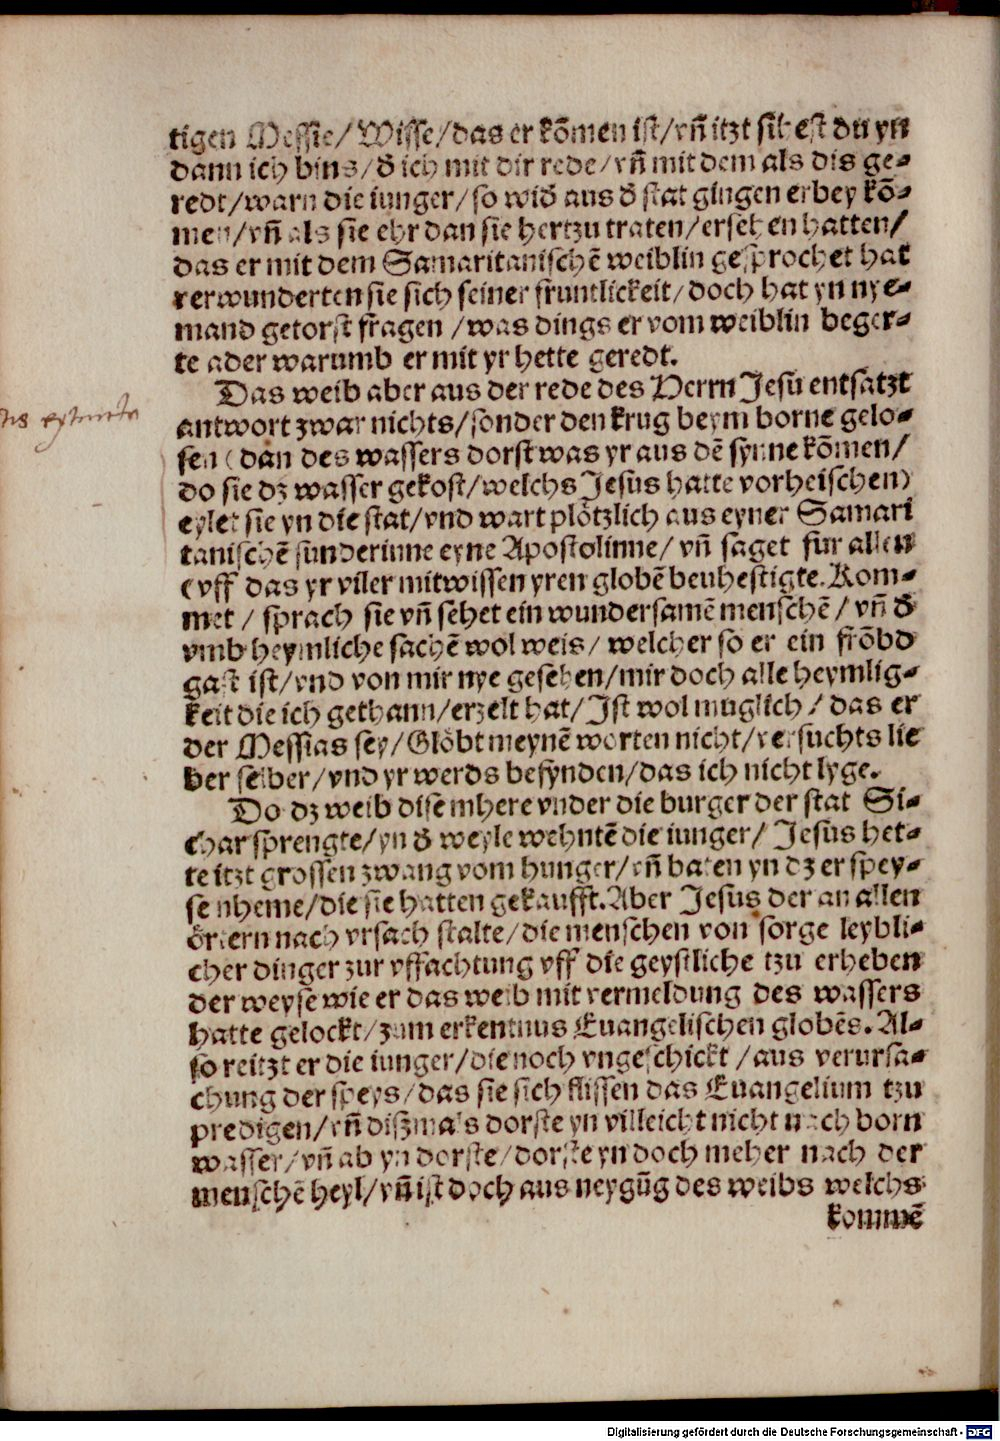 tigen Messie/ Wisse/ das er kõmen ist/ vñ itzt sihest du yn
dann ich bins/ d̕ ich mit dir rede/ vñ mit dem als dis ge⸗
redt/ warn die iunger/ so wid̕ aus d̕ stat gingen erbey kõ⸗
men/ vñ als sie ehr dan sie hertzu traten/ ersehen hatten/
das er mit dem Samaritanischẽ weiblin gesprochet hat
verwunderten sie sich seiner fruntlickeit/ doch hat yn nye⸗
mand getorst fragen / was dings er vom weiblin beger⸗
te ader warumb er mit yr hette geredt.
Das weib aber aus der rede des Herrn Jesu entsatzt
antwort zwar nichts/ sonder den krug beym borne gelo⸗
sen ( dan des wassers dorst was yr aus dẽ synne kõmen/
do sie dz wasser gekost/ welchs Jesus hatte vorheischen)
eylet sie yn die stat/ vnd wart plötzlich aus eyner Samari
tanischẽ sunderinne eyne Apostolinne/ vñ saget fur allen
(vff das yr viler mitwissen yren globẽ beuhestigte. Kom⸗
met / sprach sie vñ sehet ein wundersamẽ menschẽ / vñ d̕
vmb heymliche sachẽ wol weis/ welcher so er ein frõbd
gast ist/ vnd von mir nye gesehen/ mir doch alle heymlig⸗
keit die ich gethann/ erzelt hat/ Ist wol muglich / das er
der Messias sey/ Glöbt meynẽ worten nicht/ versuchts lie
ber selber/ vnd yr werds befynden/ das ich nicht lyge.
Do dz weib dise mhere vnder die burger der stat Si⸗
char sprengte/ yn d̕ weyle wehntẽ die iunger/ Jesus het⸗
te itzt grossen zwang vom hunger/ vñ baten yn dz er spey⸗
se nheme/ die sie hatten gekaufft. Aber Jesus der an allen
örtern nach vrsach stalte/ die menschen von sorge leybli⸗
cher dinger zur vffachtung vff die geystliche tzu erheben
der weyse wie er das weib mit vermeldung des wassers
hatte gelockt/ zum erkentnus Euangelischen globẽs. Al⸗
so reitzt er die iunger/ die noch vngeschickt / aus verursa⸗
chung der speys/ das sie sich flissen das Euangelium tzu
predigen/ vñ dißmals dorste yn villeicht nicht nach born
wasser/ vñ ab yn dorste/ dorste yn doch meher nach der
menschẽ heyl/ vñ ist doch aus neygũg des weibs welchs
kommẽ
Digitalisierung gefördert durch die Deutsche Forschungsgemeinschaft - DFG